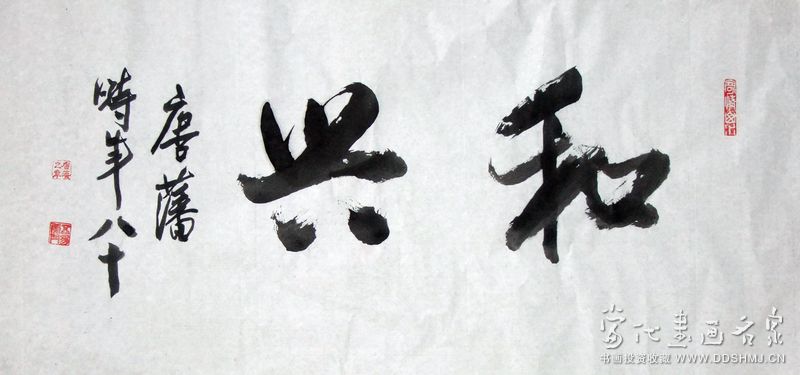 和兴
唐藩
時年八十
當代書画名家
书画投资收藏 WWW.DDSHMJ.CN